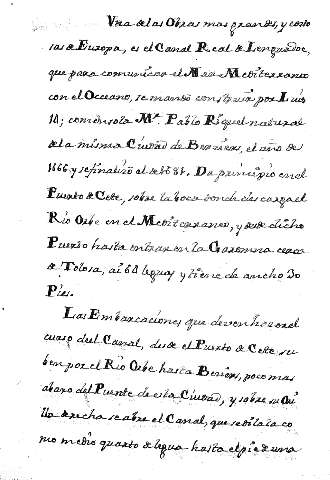 Una de las Obras mas grandes, y costo
sas de Europa, es el Canal Real de Lenguadoc,
que para comunicar el Mar Mediterraneo
con el Oceano, se mandó construir por Luis
14; comensola Mr. Pablo Riquel natural
de la misma Ciudad de Beziers, el año de
1666 y se finalizó el de 1681. Da principio en el
Puerto de Cette, sobre la boca donde descarga el
Rio Orbe en el Mediterraneo, y desde dicho
Puerto hasta entrar en la Garomna cerca
de Tolosa, ai 64 leguas y tiene de ancho 30
Pies.
Las Embarcaciones que deven hacer el
curso del Canal, desde el Puerto de Cette, su
ben por el Rio Orbe hasta Beziers, poco mas
abaxo del Puente de esta Ciudad, y sobre su Ori
lla derecha se abre el Canal, que se dilata co
mo medio quarto de legua hasta el pie de una